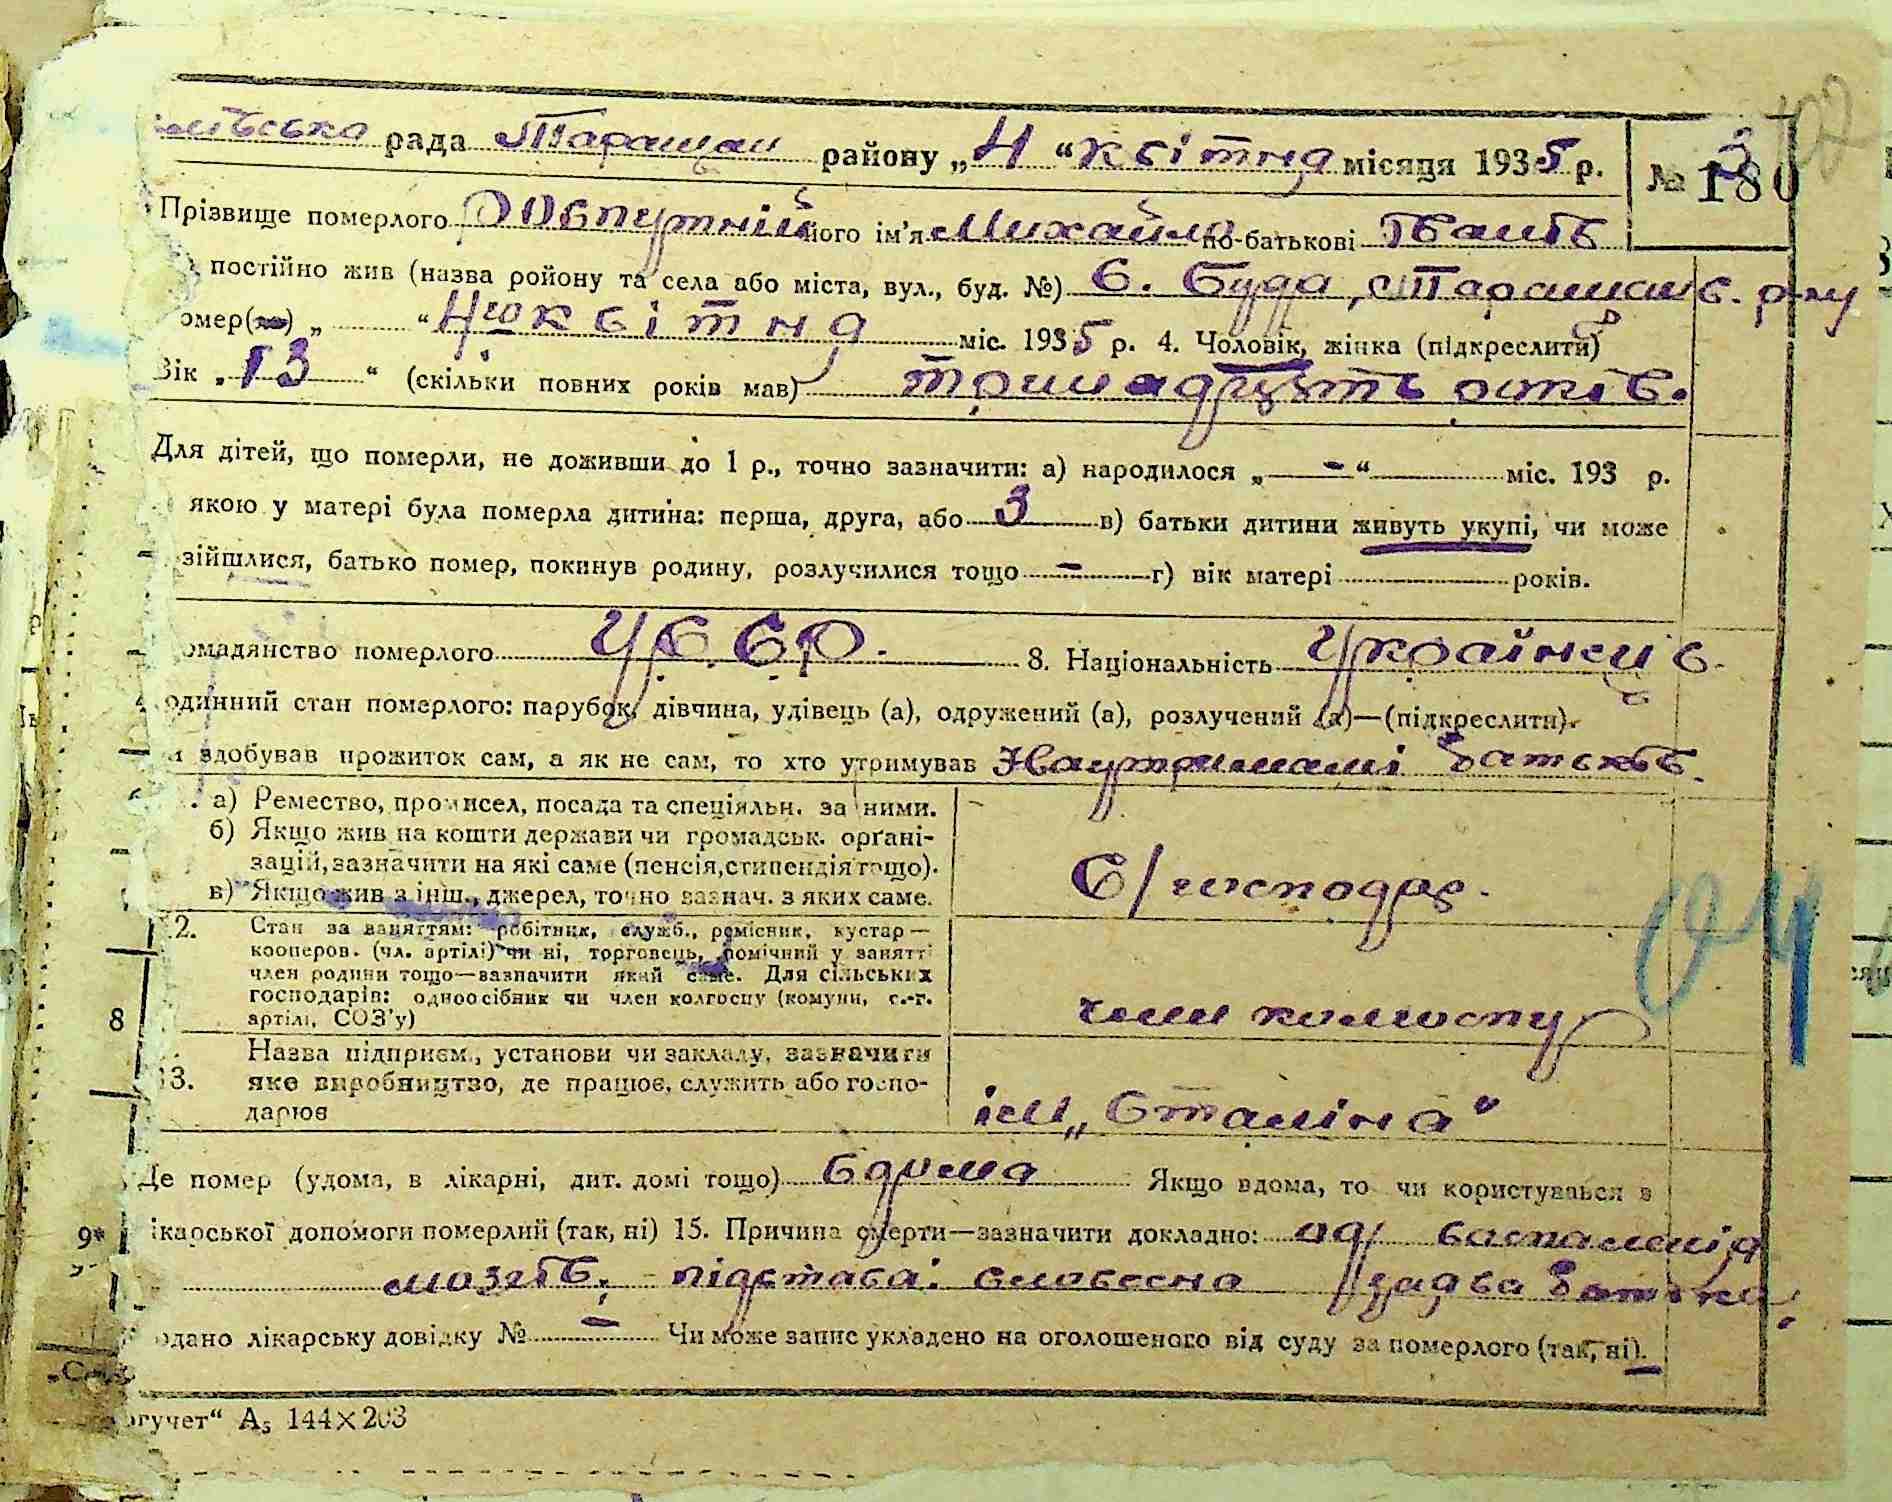 рада Таращан району „4“ квітня місяця 1935 р. № 180 3
Прізвище померлого його ім'я Михайло по-батькові Іванів
постійно жив (назва ройону та села або міста, вул., буд. №) С. Буда, Таращанс. р-ну
омер(ла) „ “ 4го квітня міс. 1935 р. 4. Чоловік, жінка (підкреслити)
Вік „13“ (скільки повних років мав) тринадцять років.
Для дітей, що померли, не доживши до 1 р., точно зазначити: а) народилося „-“ міс. 193 р.
якою у матері була померла дитина: перша, друга, або 3 в) батьки дитини живуть укупі, чи може
зійшлися, батько помер, покинув родину, розлучилися тощо - г) вік матері років.
омадянство померлого УРСР. 8. Національність Українец
одинний стан померлого: парубок, дівчина, удівець (а), одружений (а), розлучений (а)—(підкреслити).
и здобував прожиток сам, а як не сам, то хто утримував На утриманні батьків.
а) Ремество, промисел, посада та спеціяльн. за ними.
б) Якщо жив на кошти держави чи громадськ. органі-
зацій, зазначити на які саме (пенсія, стипендія тощо).
в) Якщо жив з інш., джерел, точно зазнач. з яких саме.
С/господар.
04
12. Стан за заняттям: робітник, служб., ремісник, кустар—
кооперов. (чл. артілі) чи ні, торговець, помічний у занятті
член родини тощо—зазначити який саме. Для сільських
господарів: одноосібник чи член колгоспу (комуни, с.-г.
артілі, СОЗ'у)
член колгоспу
8
13. Назва підприєм., установи чи закладу, зазначити
яке виробництво, де працює, служить або госпо-
дарює
ім „Сталіна"
Де помер (удома, в лікарні, дит. домі тощо) вдома Якщо вдома, то чи користувався з
ікарської допомоги померлий (так, ні) 15. Причина смерти—зазначити докладно: од воспаленія
9*
мозгів, підстава: словесна заява батька.
одано лікарську довідку № - Чи може запис укладено на оголошеного від суду за померлого (так, ні).
ргучет“ А5 144×203